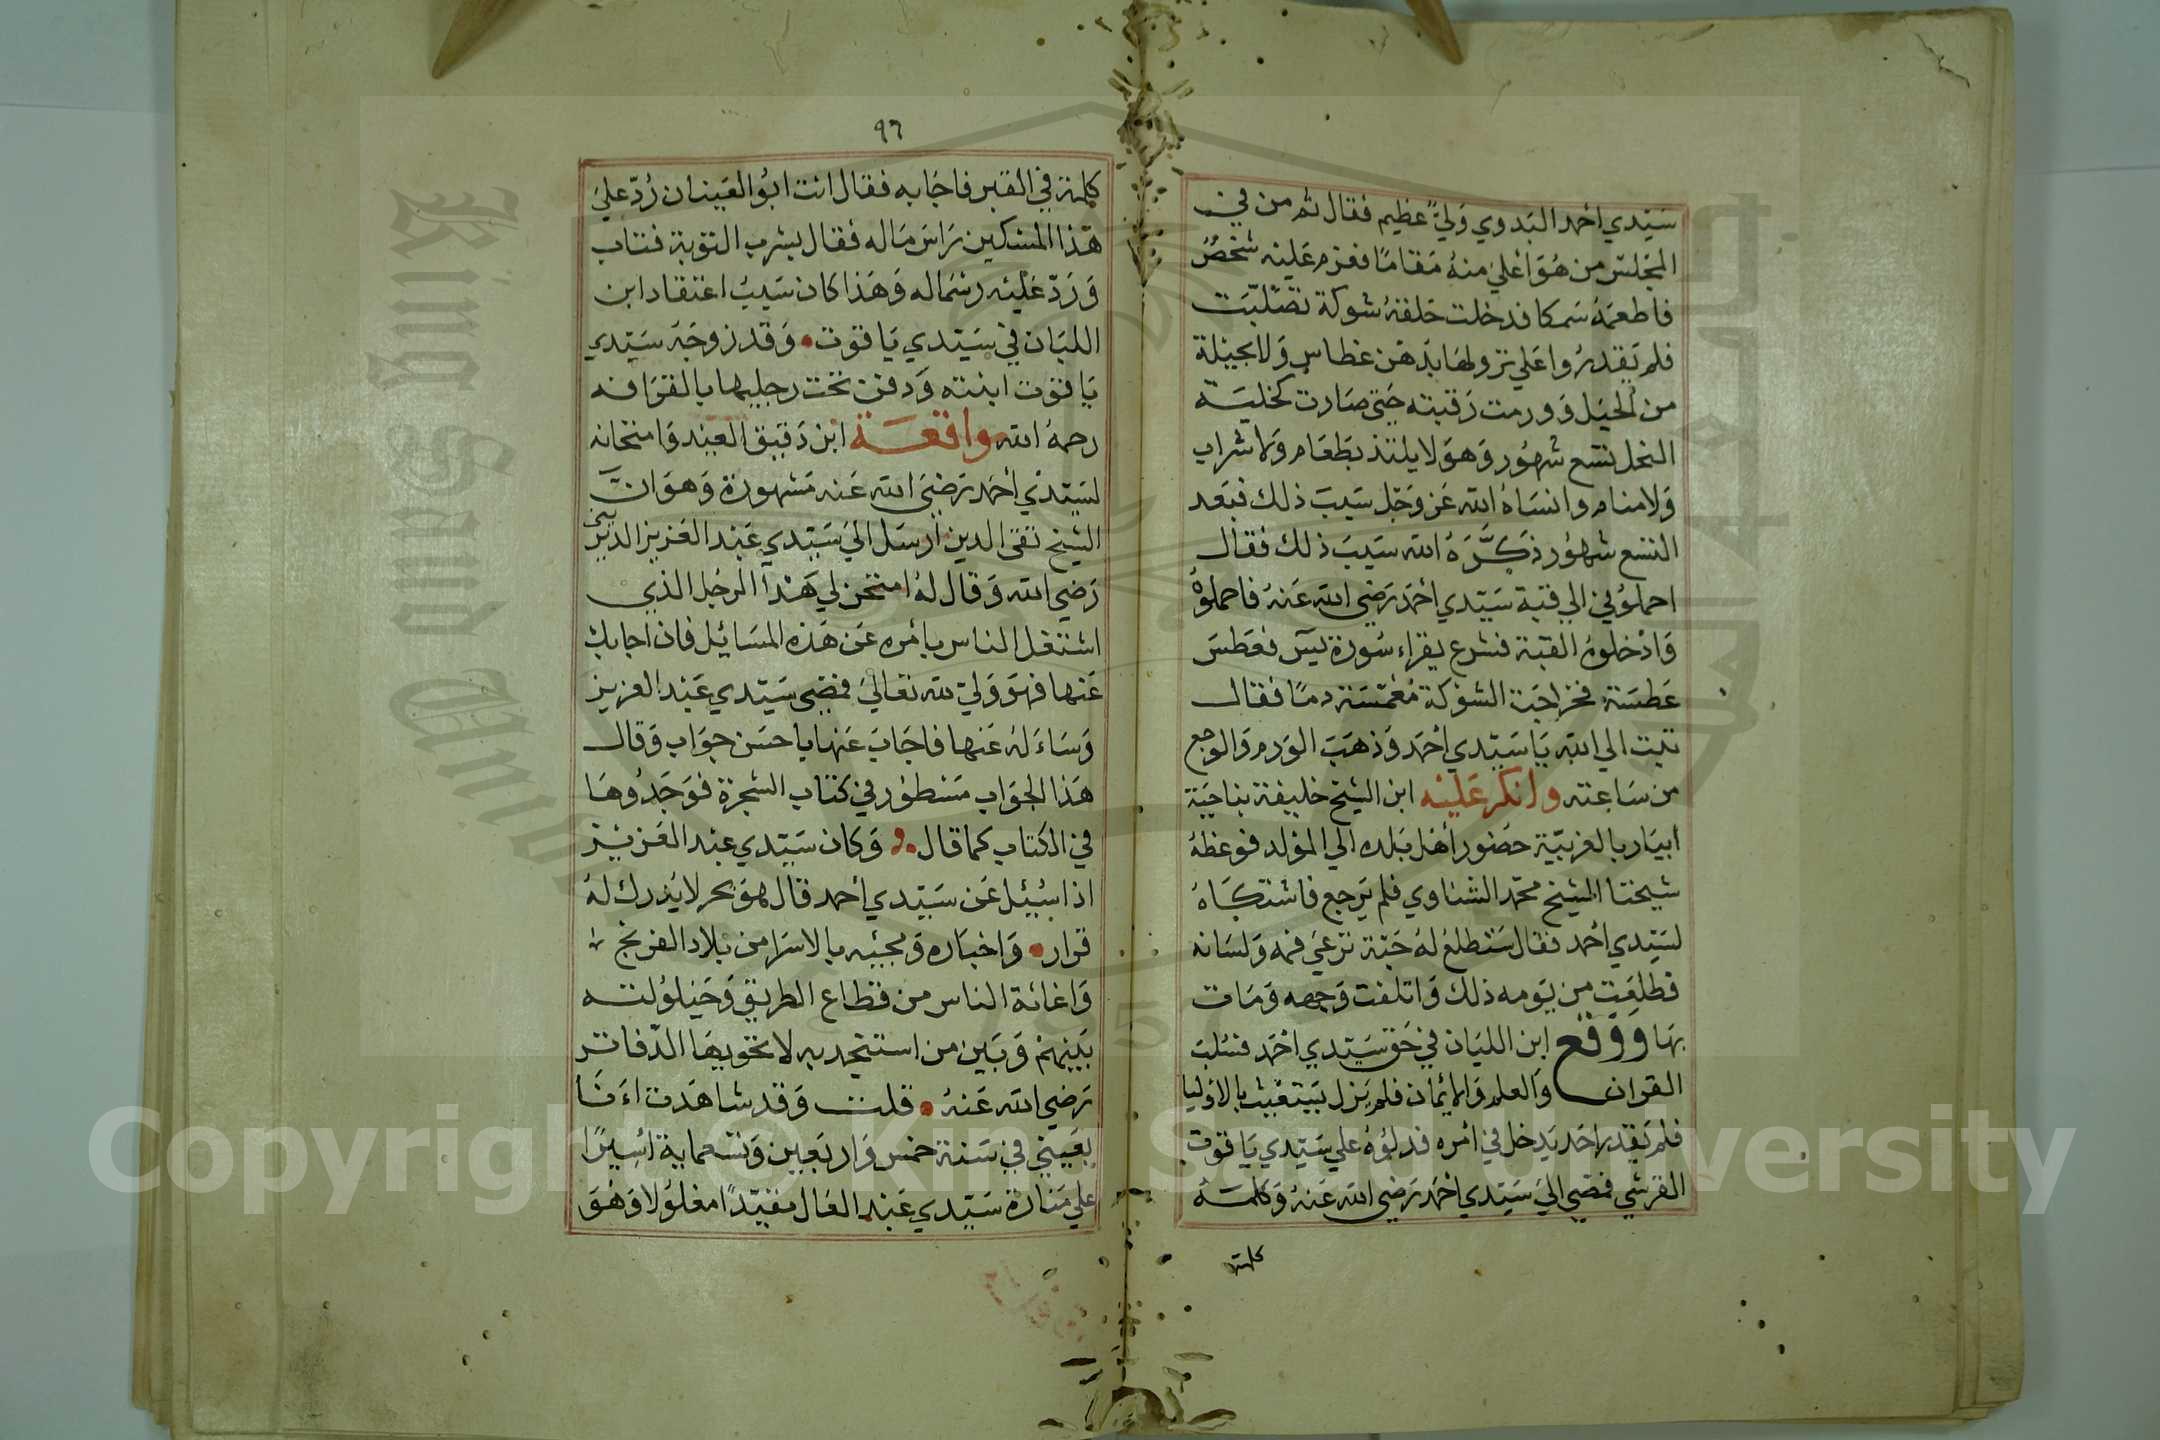 سَيّدي أحمد البَدوي وَليّ عظيم فقال ثم من في
المجَلس من هُوَ أعلى منهُ مَقامًا فعزم عَليْه شخصٌ
فاطعمَهُ سَمكا فدخلت حَلقهُ شوكة تصَلّبَت
فلم يَقدرُوا عَلي نزولهَا بدَهن عطاس وَلا بحيْلة
من الحيَل وَورمت رَقبته حَتى صَارت كخليَة
النحل تسَع شهُور وَهوَ لا يلتذ بطَعَام وَلا شراب
وَلا منام وانسَاهُ الله عَز وَجَل سَببَ ذلك فبَعد
التسَع شهُور ذكَّرَهُ الله سَببَ ذلك فقال
احملوُني الي قبة سَيّدي أحمَد رَضي الله عَنهُ فاحملوُهُ
وَادْخلوهُ القبة فشرع يقراء سُورة يسَ فعَطسَ
عَطسَة فخراجَت الشوكة مُغمّسَة دمًا فقال
تبت الي الله يَا سَيّدي أحمَد وَذهَبَ الوَرم وَالوجع
من سَاعته وانكر عَليْه ابن الشيخ خليفة بناحيَة
أبيَار بالغربيّة حضُور أهل بَلده الي المَولد فوعظهُ
شيخنا الشيخ محمّد الشناوي فلم يَرجع فاشتكَاهُ
لسَيّدي أحمد فقال سَتطلعُ لهُ حَبّة ترعي فمه وَلسَانه
فطلعَت من يَومه ذلك وَاتلفت وَجهه وَمَات
بهَا وَوَقع ابن اللبان في حَق سَيّدي احْمَد فسُلبَ
القران وَالعلم وَالايمَان فلم يَزل يَستغيث بالاوليا
فلم يَقدر احَد يَدخل في أمره فدلوُهُ علي سَيّدي يَاقوت
القرشي فمضي اليَ سَيّدي احْمَد رَضي الله عَنهُ وَكلمَهُ
كلمة
٩٦
كلمة في القبر فاجَابه فقال انت ابُو الفتيان رُدّ عليَ
هَذا المسْكين رَاسَ مَاله فقال بشرط التوبة فتاب
وَرَدّ عَليْه رسْمَاله وَهَذا كان سَببُ اعتقاد ابن
اللبَان في سَيّدي يَاقوت وَقد زوجَهَ سَيّدي
يَاقوت ابنته وَدفن تحت رجليها بالقرَافه
رحمهُ الله واقعَة ابن دَقيق العيْد وَامتحانه
لسَيّدي أحمَد رَضيَ الله عَنه مَشهورة وَهوَ انّ
الشيخ تقى الدين أرسَل اليَ سَيّدي عَبْد العَزيز الديريني
رَضي الله وَقال لهُ امتحن لي هَذا الرجُل الذي
اشتغل الناس بأمره عَن هَذه المسَائل فان أجابك
عَنها فهوَ وَليّ لله تعَاليَ فمضى سَيّدي عَبْد العزيز
وَسَاءَ لهُ عَنها فاجَابَ عَنها باحسَن جوَاب وَقال
هَذا الجوَاب مَسْطوُر في كتاب الشجرة فوَجَدُوهَا
في الكتاب كما قال وَكان سَيّدي عبْد العَزيْز
اذا سُئل عَن سَيّدي أحمد قال هوَ بحر لا يُدرك لهُ
قرار وَاخبَاره وَمجيئه بالاسرَا من بلاد الفرنج
وَاغاثة الناس من قطاع الطريق وَحَيْلوُلته
بَينهمْ وَبَين من استنجد به لا تحويهَا الدّفاتر
رَضي الله عَنهُ قلت وَقد شاهَدت اءَنَا
بعَيني في سَنة خمس وَاربَعين وَتسْعماية أسِيرًا
علي مَنارة سَيّدي عَبْد العَال مقيّدًا مغلوُلا وَهُوَ